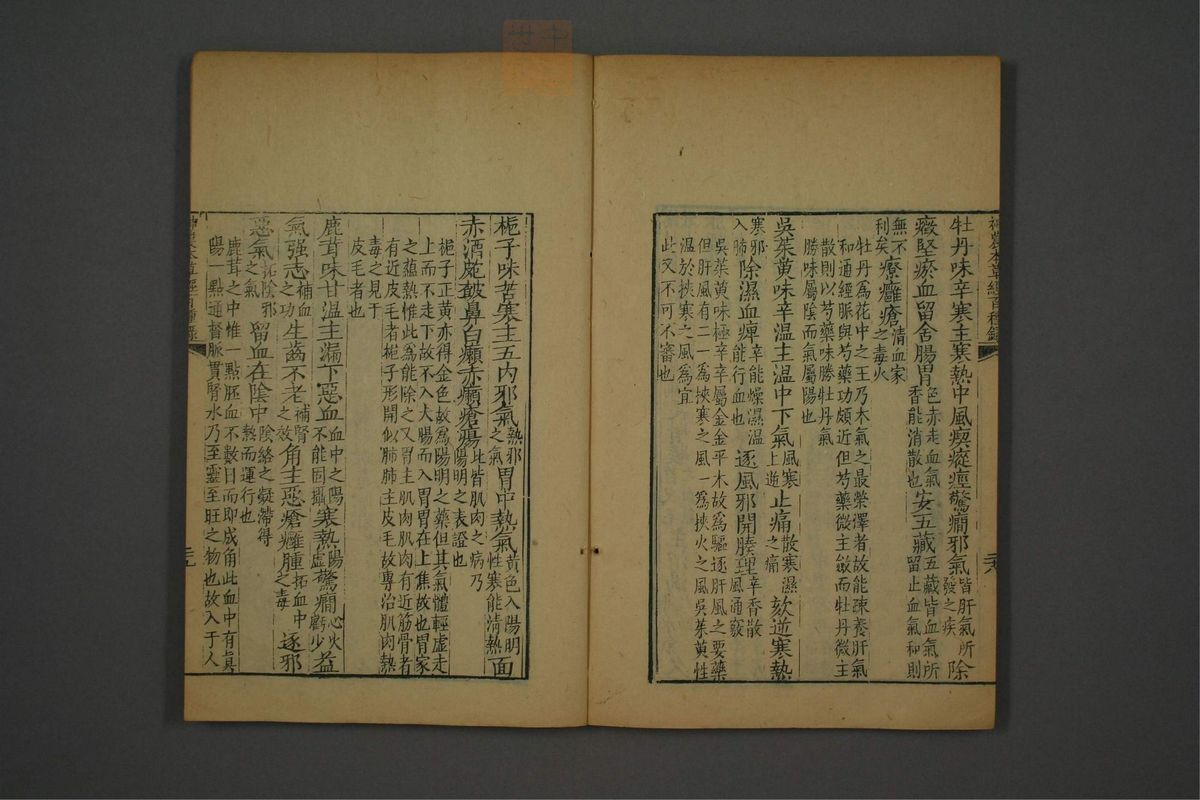 神農本草經百種錄
牡丹味辛寒主寒熱中風瘈瘲痙驚癇邪氣皆肝氣所發之疾除
癥堅瘀血留舍腸胃色赤走血氣香能消散也安五藏五藏皆血氣所留止血氣和則
無不利矣療癰瘡清血家之毒火
牡丹為花中之王乃木氣之最榮澤者故能疎養肝氣
和通經脈與芍藥功頗近但芍藥微主斂而牡丹微主
散則以芍藥味勝牡丹氣
勝味屬陰而氣屬陽也
吳茱萸味辛溫主溫中下氣風寒上逆止痛散寒濕之痛欬逆寒熱
寒邪入肺除濕血痺辛能燥濕溫能行血也逐風邪開腠理辛香散風通竅
吳茱萸味極辛辛屬金金平木故為驅逐肝風之要藥
但肝風有二一為挾寒之風一為挾火之風吳茱萸性
溫於挾寒之風為宜
此又不可不審也
梔子味苦寒主五内邪氣熱邪之氣胃中熱氣黃色入陽明性寒能清熱面
赤酒皰皶鼻白癩赤癩瘡瘍此皆肌肉之病乃陽明之表證也
梔子正黃亦得金色故為陽明之藥但其氣體輕虛走
上而不走下故不入大腸而入胃胃在上焦故也胃家
之蘊熱惟此為能除之又胃主肌肉肌肉有近筋骨者
有近皮毛者梔子形開似肺肺主皮毛故專治肌肉熱
毒之見于
皮毛者也
鹿茸味甘溫主漏下惡血血中之陽不能固攝寒熱陽虛驚癇心火虧少益
氣强志補血之功生齒不老補腎之效角主惡瘡癰腫拓血中之毒逐邪
惡氣拓陰邪之氣留血在陰中陰絡之凝滯得熱而運行也
鹿茸之中惟一點胚血不數日而即成角此血中有眞
陽一點通督脈貫腎水乃至靈至旺之物也故入于人
神農本草經百種錄